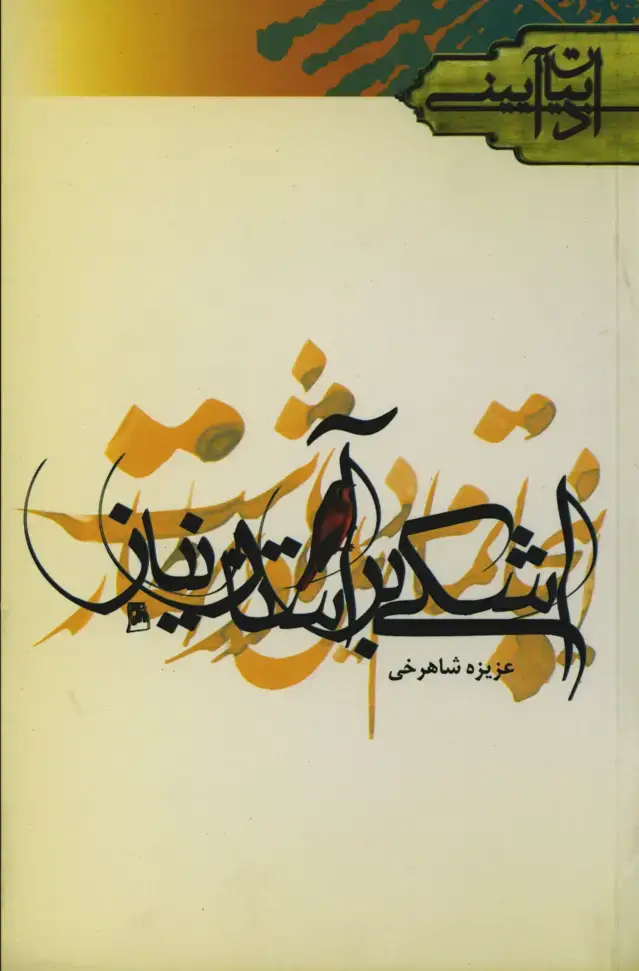 ادبیات آیینی
اشکی بر آستان نیاز
عزیزه شاهرخی